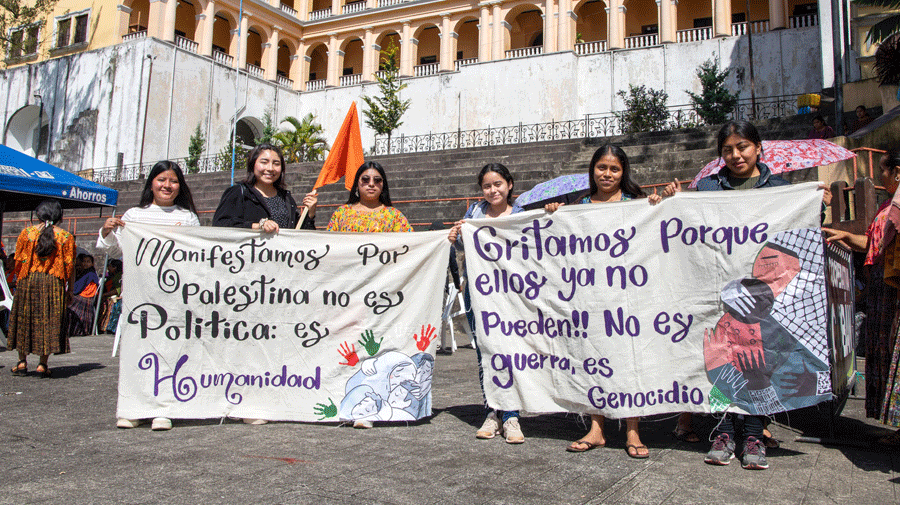 Ahorros
Manifestamos Por
Palestina no es
Politica: es
Humanidad
Gritamos Porque
ellos ya no
Pueden!! No es
guerra, es
Genocidio